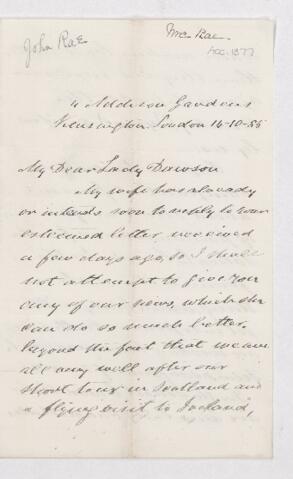 John Rae
Mrs. Rae.
Acc. 1877
4 Addison Gardens
Kensington London 14-10-85
My Dear Lady Dawson
My wife has already
or intends soon to reply to your
esteemed letter received
a few days ago, so I shall
not attempt to give you
any of our news, which she
can do so much better,
beyond the fact that we are
all very well after our
short tour in Scotland and
a flying visit to Ireland,